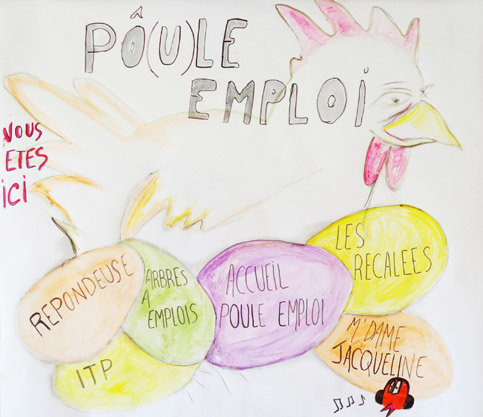 PÔ(U)LE
EMPLOI
VOUS
ETES
ICI
REPONDEUSE
ARBRES
A
EMPLOIS
ACCUEIL
POULE EMPLOI
LES
RECALEES
ITP
M'DAME
JACQUELINE